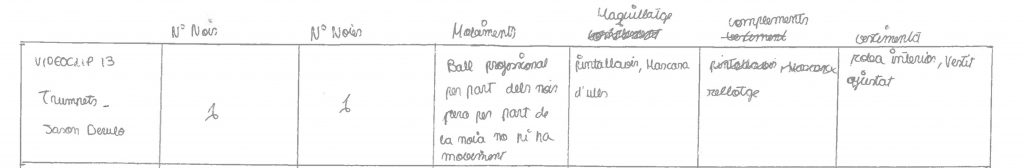 Nº Nois
Nº Noies
Moviments
Maquillatge
complements
vestiment
vestimenta
VIDEOCLIP 13
Trumpets -
Jason Derulo
1
1
Ball professional
per part dels nois
pero per part de
la noia no hi ha
moviment
pintallavis, Mascara
d'ulls
pintallavis, Mascara
rellotge
roba interior, Vestit
ajustat